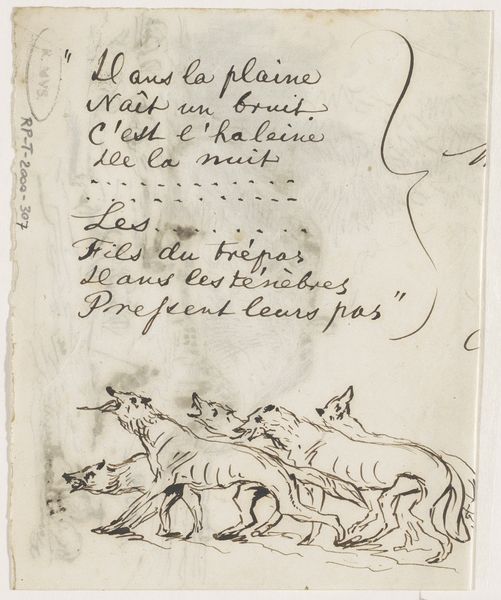 "Dans la plaine
Naît un bruit
C'est l'haleine
De la nuit
. . . . . . . . . . . .
. . . . . . . . . . . .
Les . . . . . . .
Fils du trépas
Dans les ténèbres
Pressent leurs pas"
RP-T-2000-307